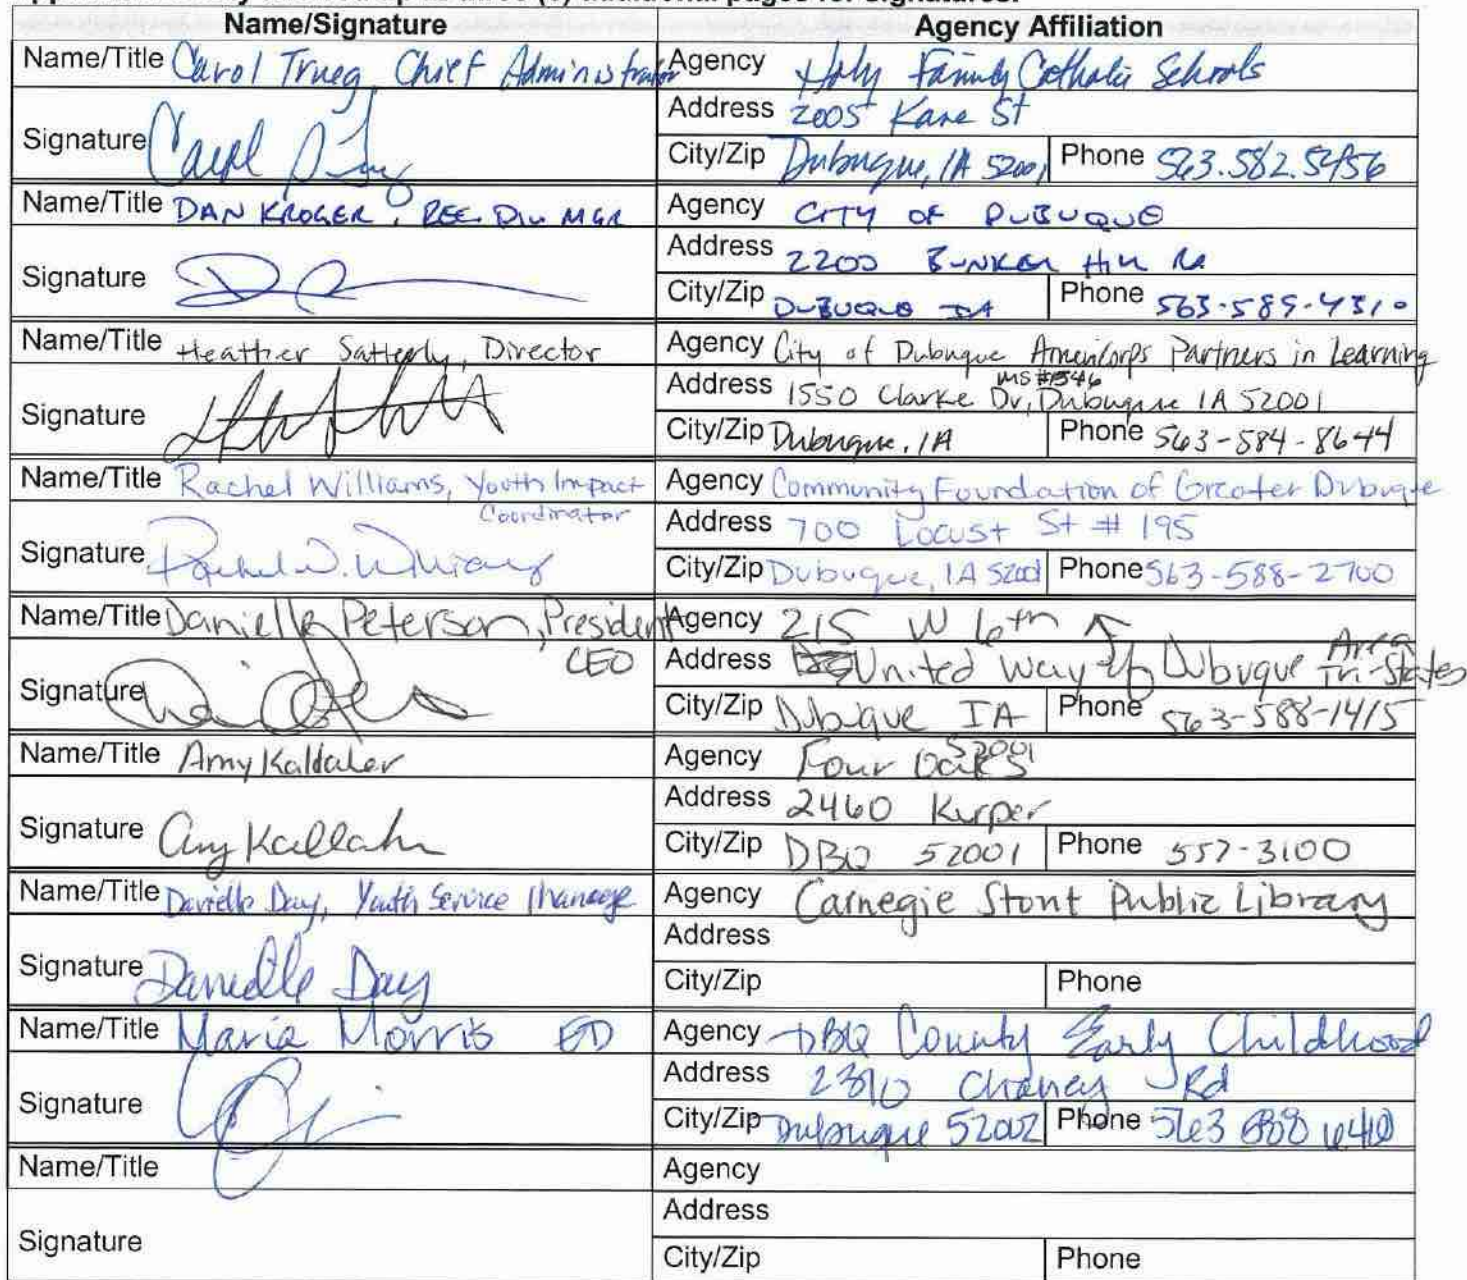 Name/Signature Agency Affiliation
Name/Title Carol Trueg, Chief Administrator Agency Holy Family Catholic Schools
Address 2005 Kane St
Signature Carol
City/Zip Dubuque, IA 52001 Phone 563.582.5456
Name/Title DAN KROGER, REC. DIV MGR Agency CITY OF DUBUQUE
Address 2200 BUNKER HILL Rd
Signature
City/Zip DUBUQUE IA Phone 563-589-4310
Name/Title Heather Satterly, Director Agency City of Dubuque AmeriCorps Partners in Learning
MS #1546
Address 1550 Clarke Dr, Dubuque IA 52001
Signature
City/Zip Dubuque, IA Phone 563-584-8644
Name/Title Rachel Williams, Youth Impact Coordinator Agency Community Foundation of Greater Dubuque
Address 700 Locust St # 195
Signature Rachel W. Williams
City/Zip Dubuque, IA 52001 Phone 563-588-2700
Name/Title Danielle Peterson, President CEO Agency 215 W 6th
Address United Way of Dubuque Area Tri-States
Signature
City/Zip Dubuque IA 52001 Phone 563-588-1415
Name/Title Amy Kaldaher Agency Four Oaks
Address 2460 Kerper
Signature Amy
City/Zip DBQ 52001 Phone 557-3100
Name/Title Danielle Day, Youth Service Manager Agency Carnegie Stout Public Library
Address
Signature Danielle Day
City/Zip Phone
Name/Title Maria Morris ED Agency DBQ County Early Childhood
Address Chaney Rd
Signature
City/Zip Dubuque 52002 Phone 563
Name/Title Agency
Address
Signature
City/Zip Phone